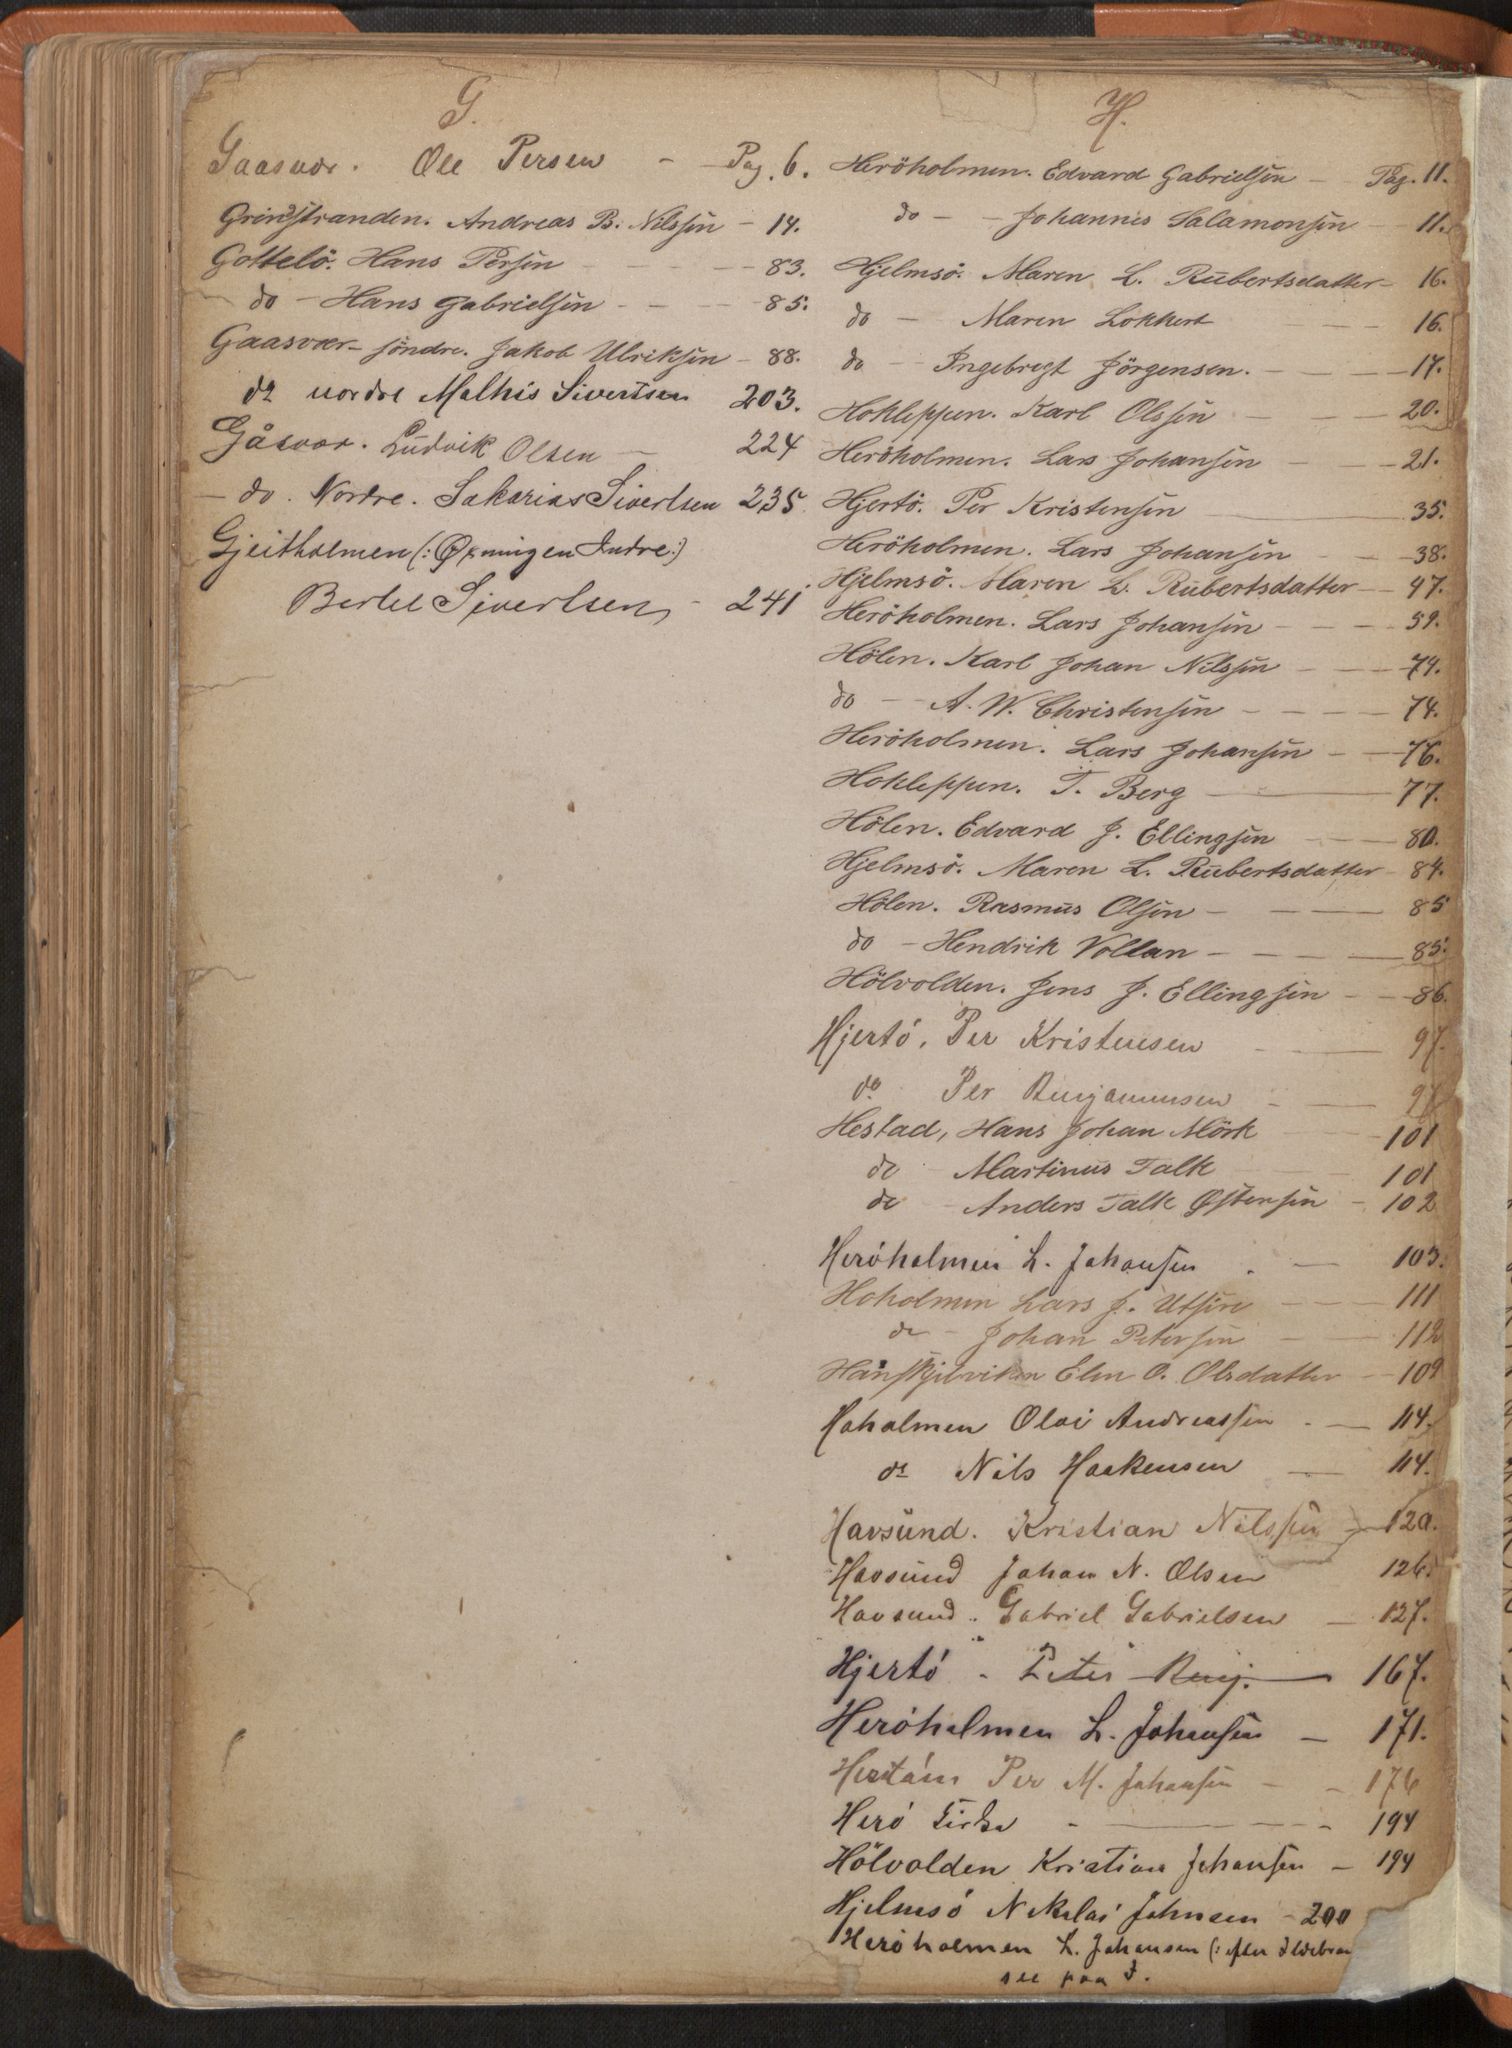 G.
Gaasvær. Ole Persen - Pag. 6.
Grindstranden. Andreas B. Nilssen - 14.
Gottelö. Hans Persen - - - - 83.
do - Hans Gabrielsen - - - - 85.
Gaasvær - söndre. Jakob Ulriksen - 88.
do nordre Mathis Sivertsen 203.
Gåsvær. Ludvik Olsen - 224
- do. Nordre. Sakarias Sivertsen 235.
Gjeitholmen (: Øxningen Indre:)
Bertel Sivertsen - 241
H.
Heröholmen. Edvard Gabrielsen - Pag. 11.
do - - Johannes Salamonsen - 11.
Hjelmsö. Maren L. Rubertsdatter - 16.
do - Maren Lokkert - - - 16.
do - Ingebregt Jörgensen. - - - - 17.
Hokleppen. Karl Olssen - - - 20.
Heröholmen. Lars Johansen - - - 21.
Hjertö. Per Kristensen - 35.
Heröholmen. Lars Johansen - - - 38.
Hjelmsö. Maren L. Rubertsdatter - 47.
Heröholmen. Lars Johansen - - - - 59.
Hölen. Karl Johan Nilssen - - - 74.
do - - A. W. Christensen - - - - 74.
Heröholmen. Lars Johansen - - 76.
Hokleppen. T. Berg - 77.
Hölen. Edvard J. Ellingsen - - - 80.
Hjelmsö. Maren L. Rubertsdatter - 84.
Hölen. Rasmus Olsen - - - 85
do - Hendrik Vollan - - - - 85.
Hölvolden. Jens J. Ellingsen - - 86.
Hjertö, Per Kristensen - - 97.
do Per Benjaminsen - - 97
Hestad, Hans Johan Mörk - 101
do Martinus Falk - 101
do - Anders Falk Østensen - 102
Heröholmen L. Johansen . - 103.
Hoholmen Lars J. Utsire - - - 111
do - Johan Petersen - - 112
Hanskjelviken Elen O. Olsdatter - 109
Hoholmen Olai Andreassen . - 114.
do Nils Haakensen - 114.
Havsund. Kristian Nilssen - 120.
Havsund Johan N. Olsen 126.
Havsund. Gabriel Gabrielsen - 127.
Hjertö - Peter Benj. - 167.
Heröholmen L. Johansen - 171.
Per M. Johansen - - 176
Herö Kirke - - - - 194
Hölvolden Kristian Johansen - 194
Hjelmsö Nikolai Johnsen - 200
Heröholmen L. Johansen (: efter Ildebran
see paa I.